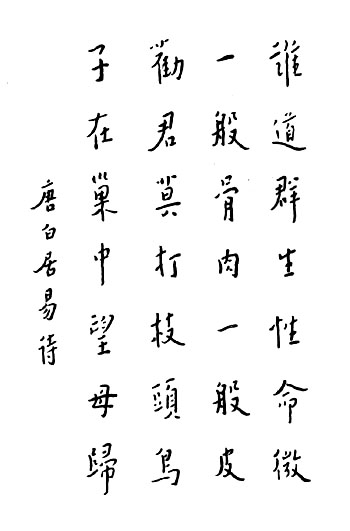 誰道群生性命微
一般骨肉一般皮
勸君莫打枝頭鳥
子在巢中望母歸
唐白居易詩